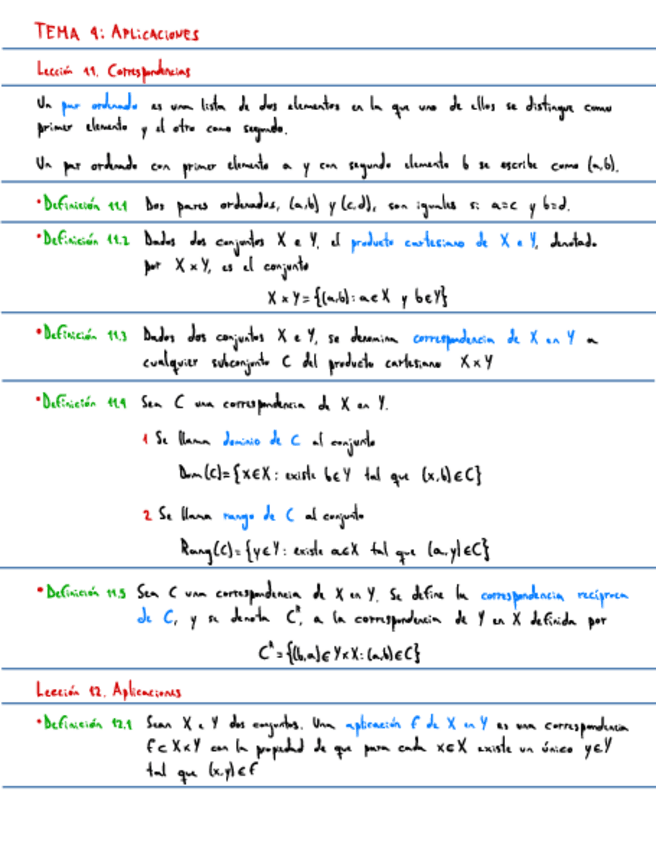 TEMA 4: APLICACIONES
Lección 11. Correspondencias
Un par ordenado es una lista de dos elementos en la que uno de ellos se distingue como
primer elemento y el otro como segundo.
Un par ordenado con primer elemento a y con segundo elemento b se escribe como (a,b).
•Definición 11.1 Dos pares ordenados, (a,b) y (c,d), son iguales si a=c y b=d.
•Definición 11.2 Dados dos conjuntos X e Y, el producto cartesiano de X e Y, denotado
por X×Y, es el conjunto
X×Y={(a,b): a∈X y b∈Y}
•Definición 11.3 Dados dos conjuntos X e Y, se denomina correspondencia de X en Y a
cualquier subconjunto C del producto cartesiano X×Y
•Definición 11.4 Sea C una correspondencia de X en Y.
1 Se llama dominio de C al conjunto
Dom(C)={x∈X: existe b∈Y tal que (x,b)∈C}
2 Se llama rango de C al conjunto
Rang(C)={y∈Y: existe a∈X tal que (a,y)∈C}
•Definición 11.5 Sea C una correspondencia de X en Y. Se define la correspondencia recíproca
de C, y se denota Cᴿ, a la correspondencia de Y en X definida por
Cᴿ={(b,a)∈Y×X: (a,b)∈C}
Lección 12. Aplicaciones
•Definición 12.1 Sean X e Y dos conjuntos. Una aplicación f de X en Y es una correspondencia
f⊂X×Y con la propiedad de que para cada x∈X existe un único y∈Y
tal que (x,y)∈f